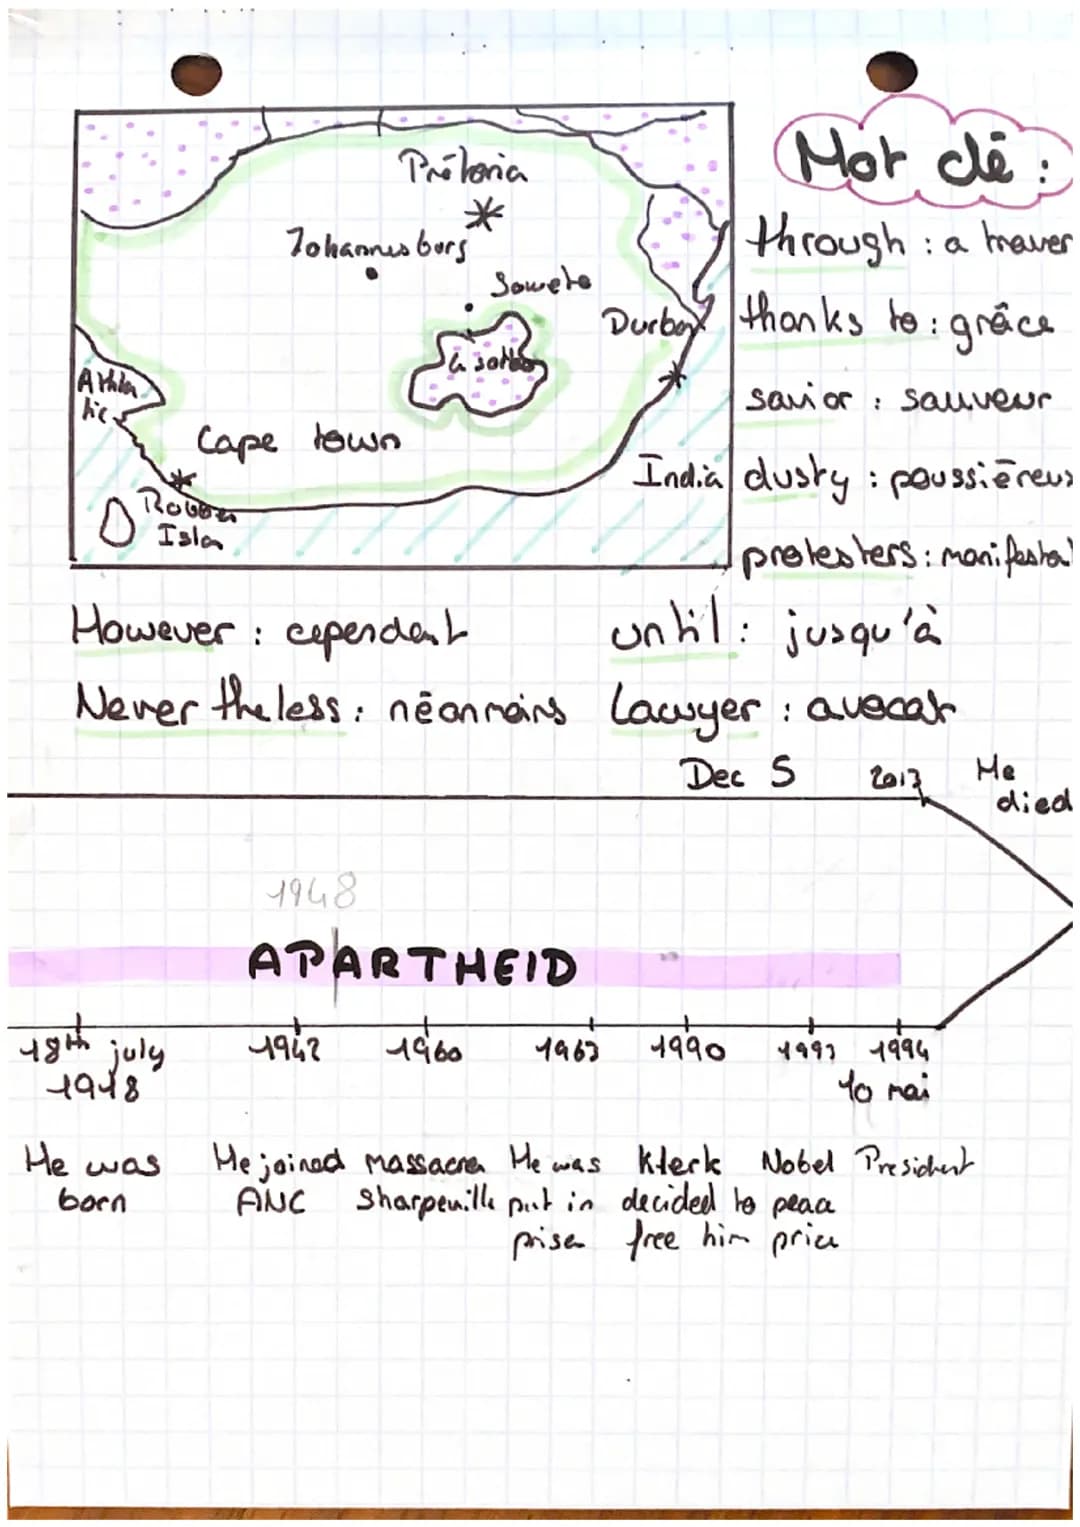 Mot clē :
Prētoria
Johannesburg
Soweto
Durban
Athlan
tic
Cape town
India
Robben
Islan
through : a traver
thanks to : grâce
savior : sauveur
dusty : poussiēreux
protesters : manifesta
However : cependant
until : jusqu'à
Never theless : nēanmoins
Lawyer : avocat
Dec 5 2013 He
died
1948
APARTHEID
18th july
1918
1942
1960
1962
1990
1993
1994
10 mai
He was
born
He joined
ANC
massacre
Sharpeville
He was
put in
prison
Klerk
decided to
free him
Nobel
peace
price
President